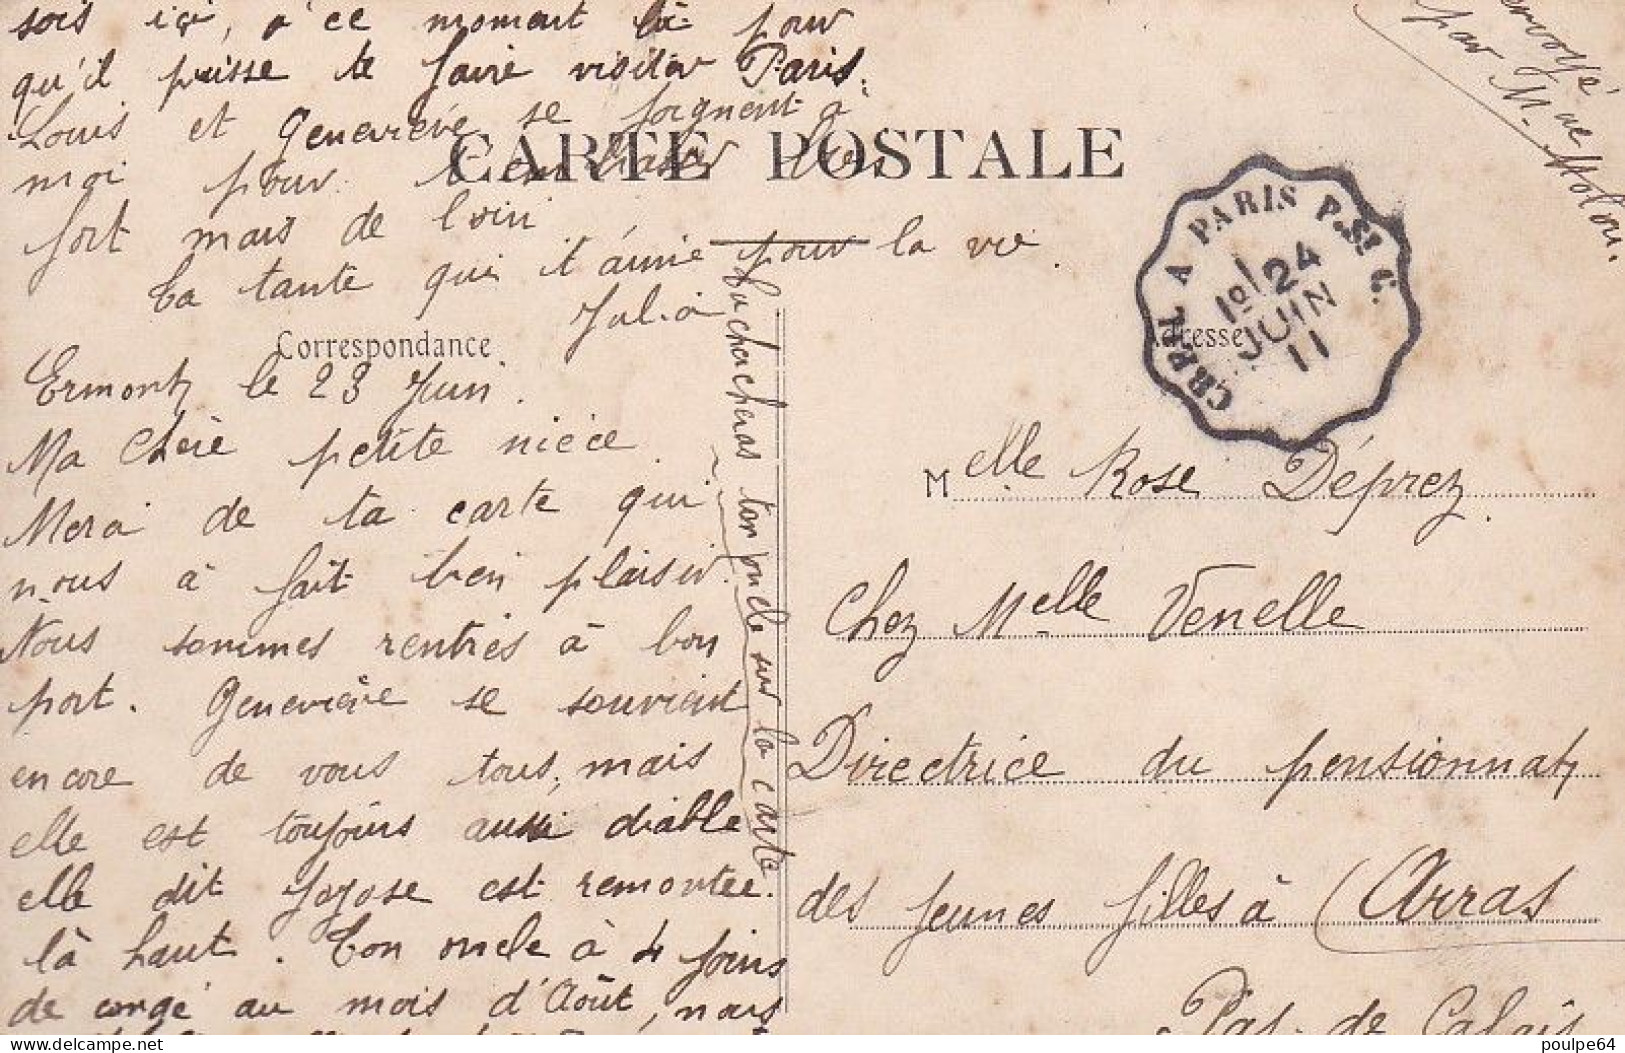 sois içi, a ce moment là pour
qu'il puisse te faire visiter Paris.
Louis et Geneviève se joignent à
moi pour t'embrasser bien
fort mais de loin
Ta tante qui t'aime pour la vie.
Julia
CARTE POSTALE
Correspondance
Ermont le 23 Juin.
Ma Chère petite nièce.
Merci de ta carte qui
nous à fait bien plaisir.
Nous sommes rentrés à bon
port. Geneviève se souvient
encore de vous tous, mais
elle est toujours aussi diable
elle dit Jojose est remontée.
là haut. Ton oncle à 4 jours
de congé au mois d'Août, nous
tu chercheras ton oncle sur la carte
envoyé
par Mme
CREIL A PARIS P.St G.
1o/24
JUIN
11
Adresse
Melle Rose Déprez.
Chez Melle Venelle
Directrice du pensionnat
des jeunes filles à Arras
Pas-de Calais
delcampe.net
poulpe64